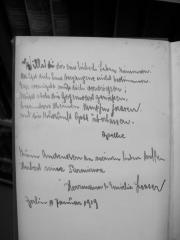 Willst du dir ein hübsch Leben zimmern,
Musst dich ums Vergangene nicht bekümmern.
Das wenigste muss dich verdriessen;
Musst stets die Gegenwart geniessen,
Besonders keinen Menschen hassen
und die Zukunft Gott überlassen.
Goethe
Andenken an seinen lieben Neffen
Berlin Januar 1929